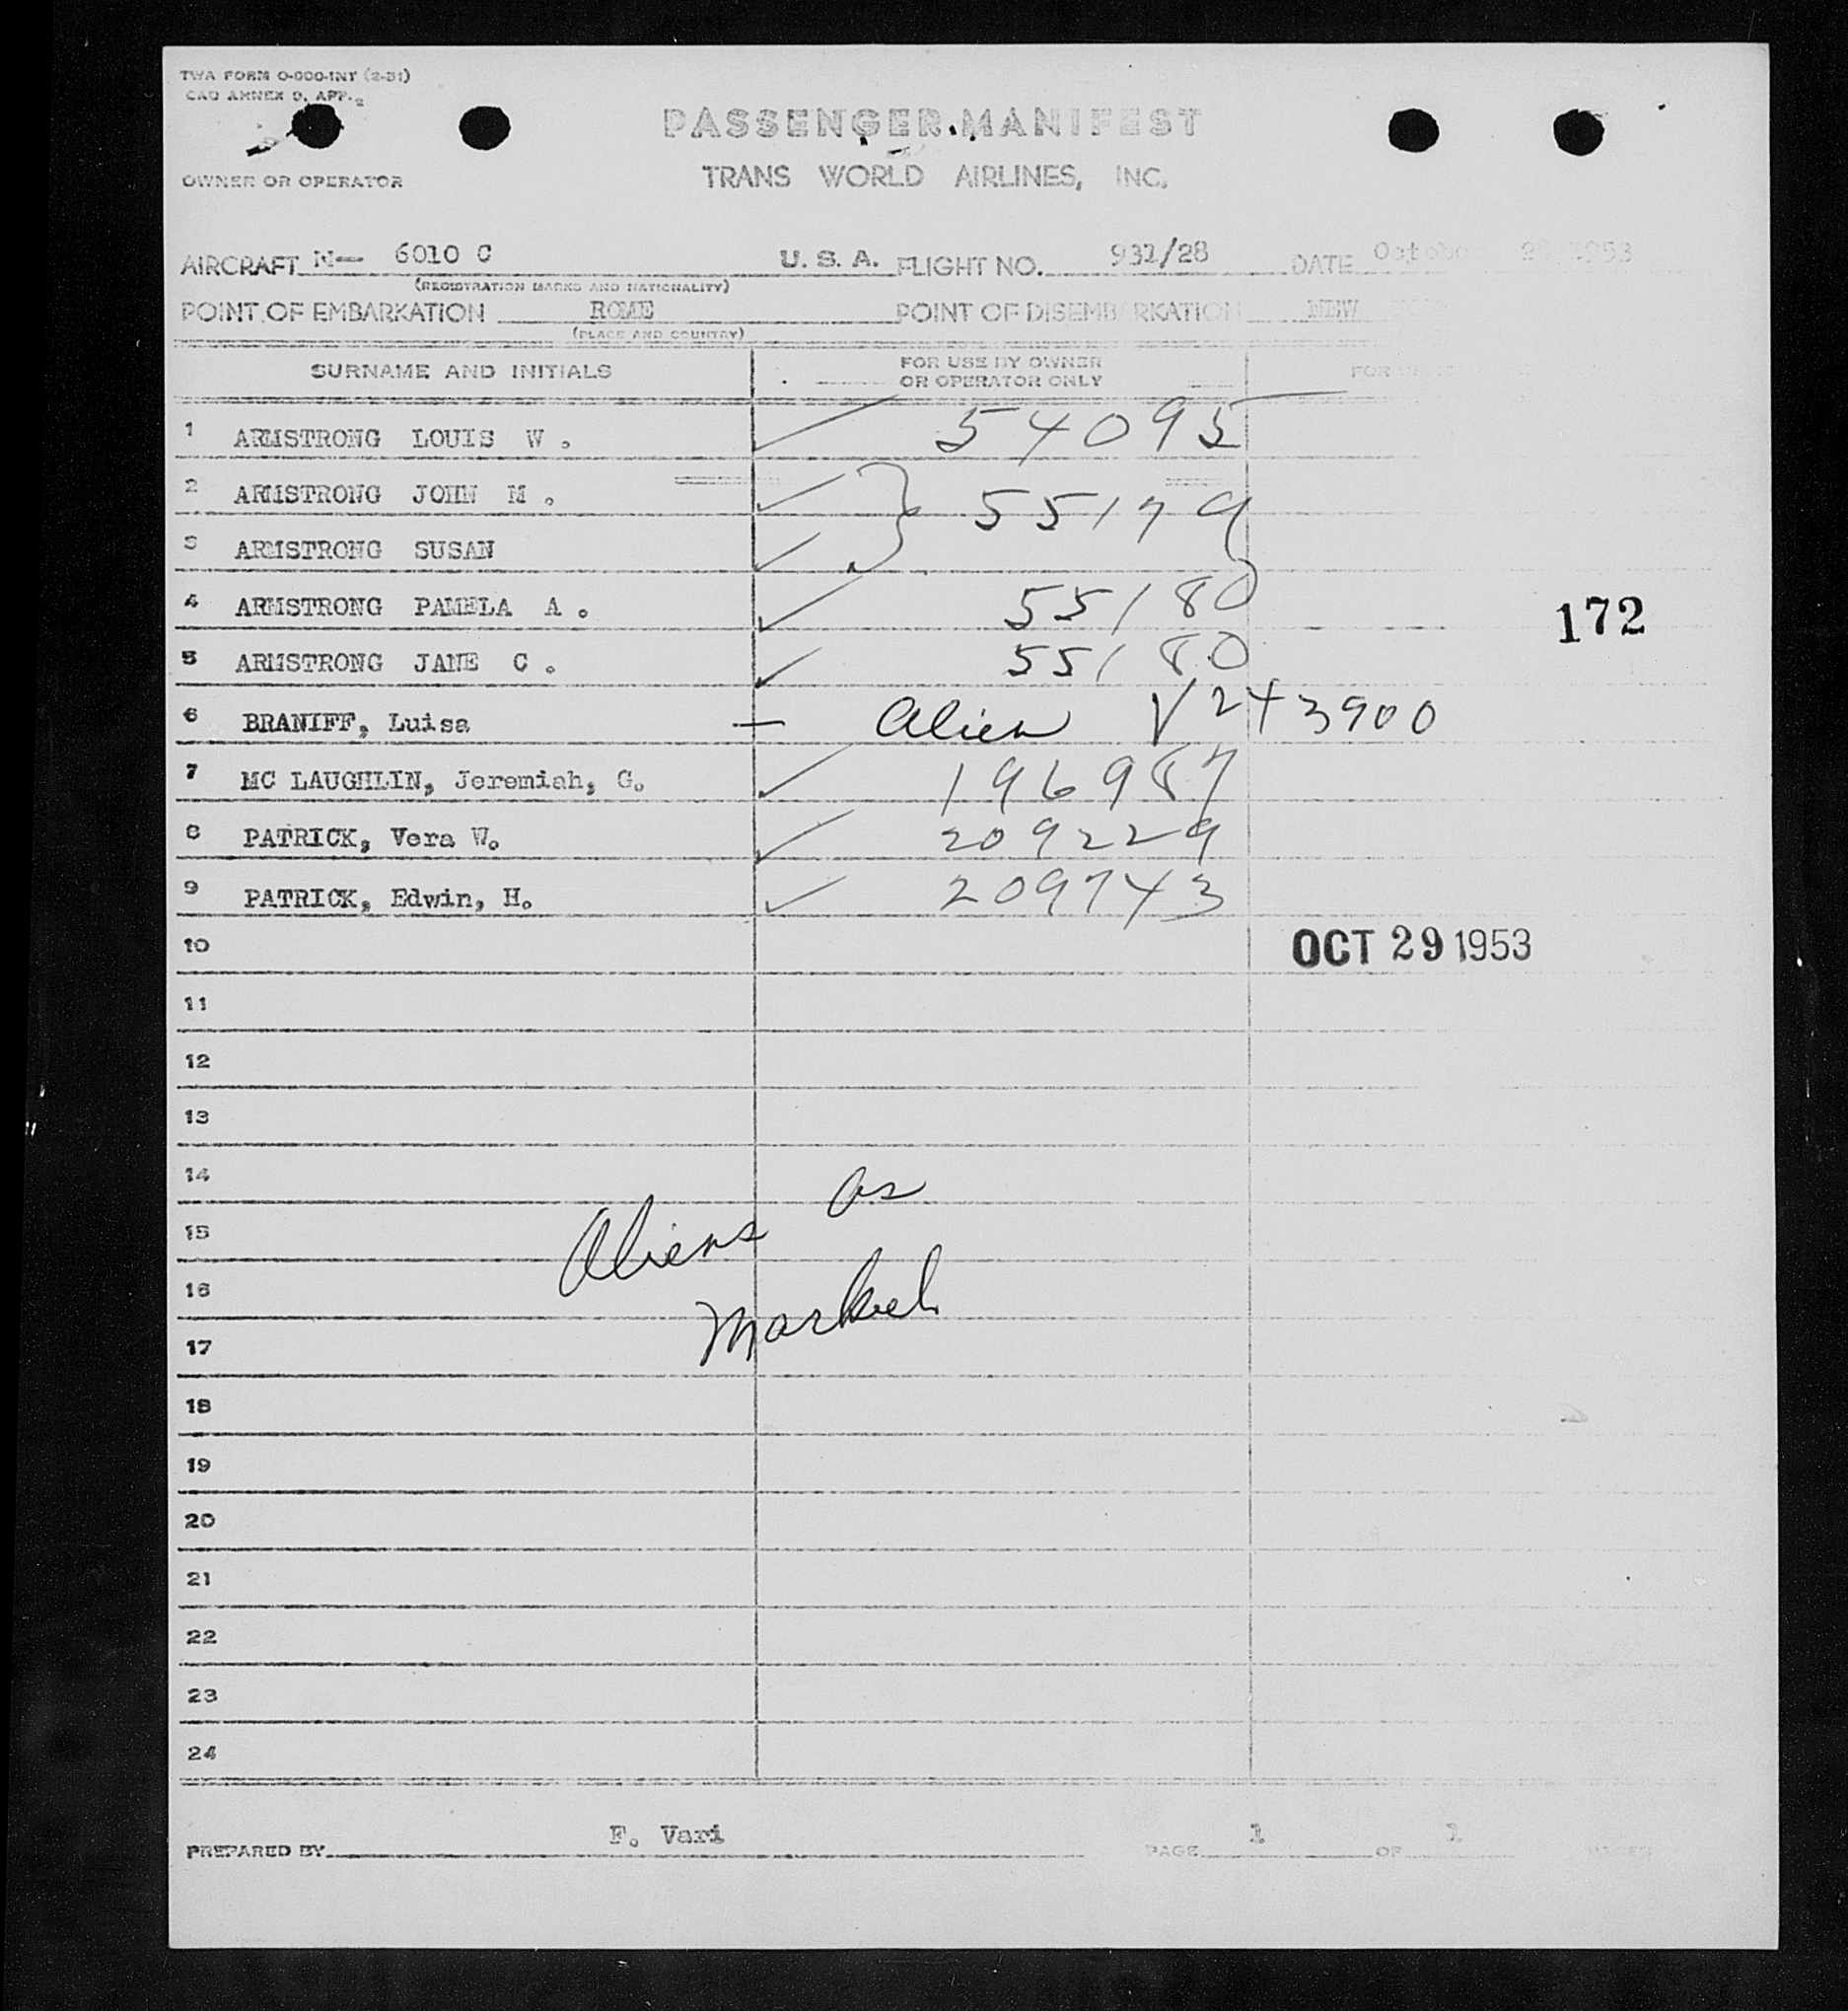 TWA FORM O-900-INT (2-51)
CAO ANNEX 9, APP. 2
PASSENGER MANIFEST
OWNER OR OPERATOR
TRANS WORLD AIRLINES, INC.
AIRCRAFT N— 6010 C U. S. A. FLIGHT NO. 931/28 DATE 1953
(REGISTRATION MARKS AND NATIONALITY)
POINT OF EMBARKATION ROME POINT OF DISEMBARKATION NEW
(PLACE AND COUNTRY)
SURNAME AND INITIALS FOR USE BY OWNER OR OPERATOR ONLY FOR
1 ARMSTRONG LOUIS W. 54095
2 ARMSTRONG JOHN M. } 55179
3 ARMSTRONG SUSAN
4 ARMSTRONG PAMELA A. 55180
172
5 ARMSTRONG JANE C. 55180
6 BRANIFF, Luisa — Alien V243900
7 MC LAUGHLIN, Jeremiah, G. 196987
8 PATRICK, Vera W. 209229
9 PATRICK, Edwin, H. 209743
10 OCT 29 1953
11
12
13
14
15 Aliens as
16 Marked
17
18
19
20
21
22
23
24
PREPARED BY F. Vari PAGE 1 OF 1